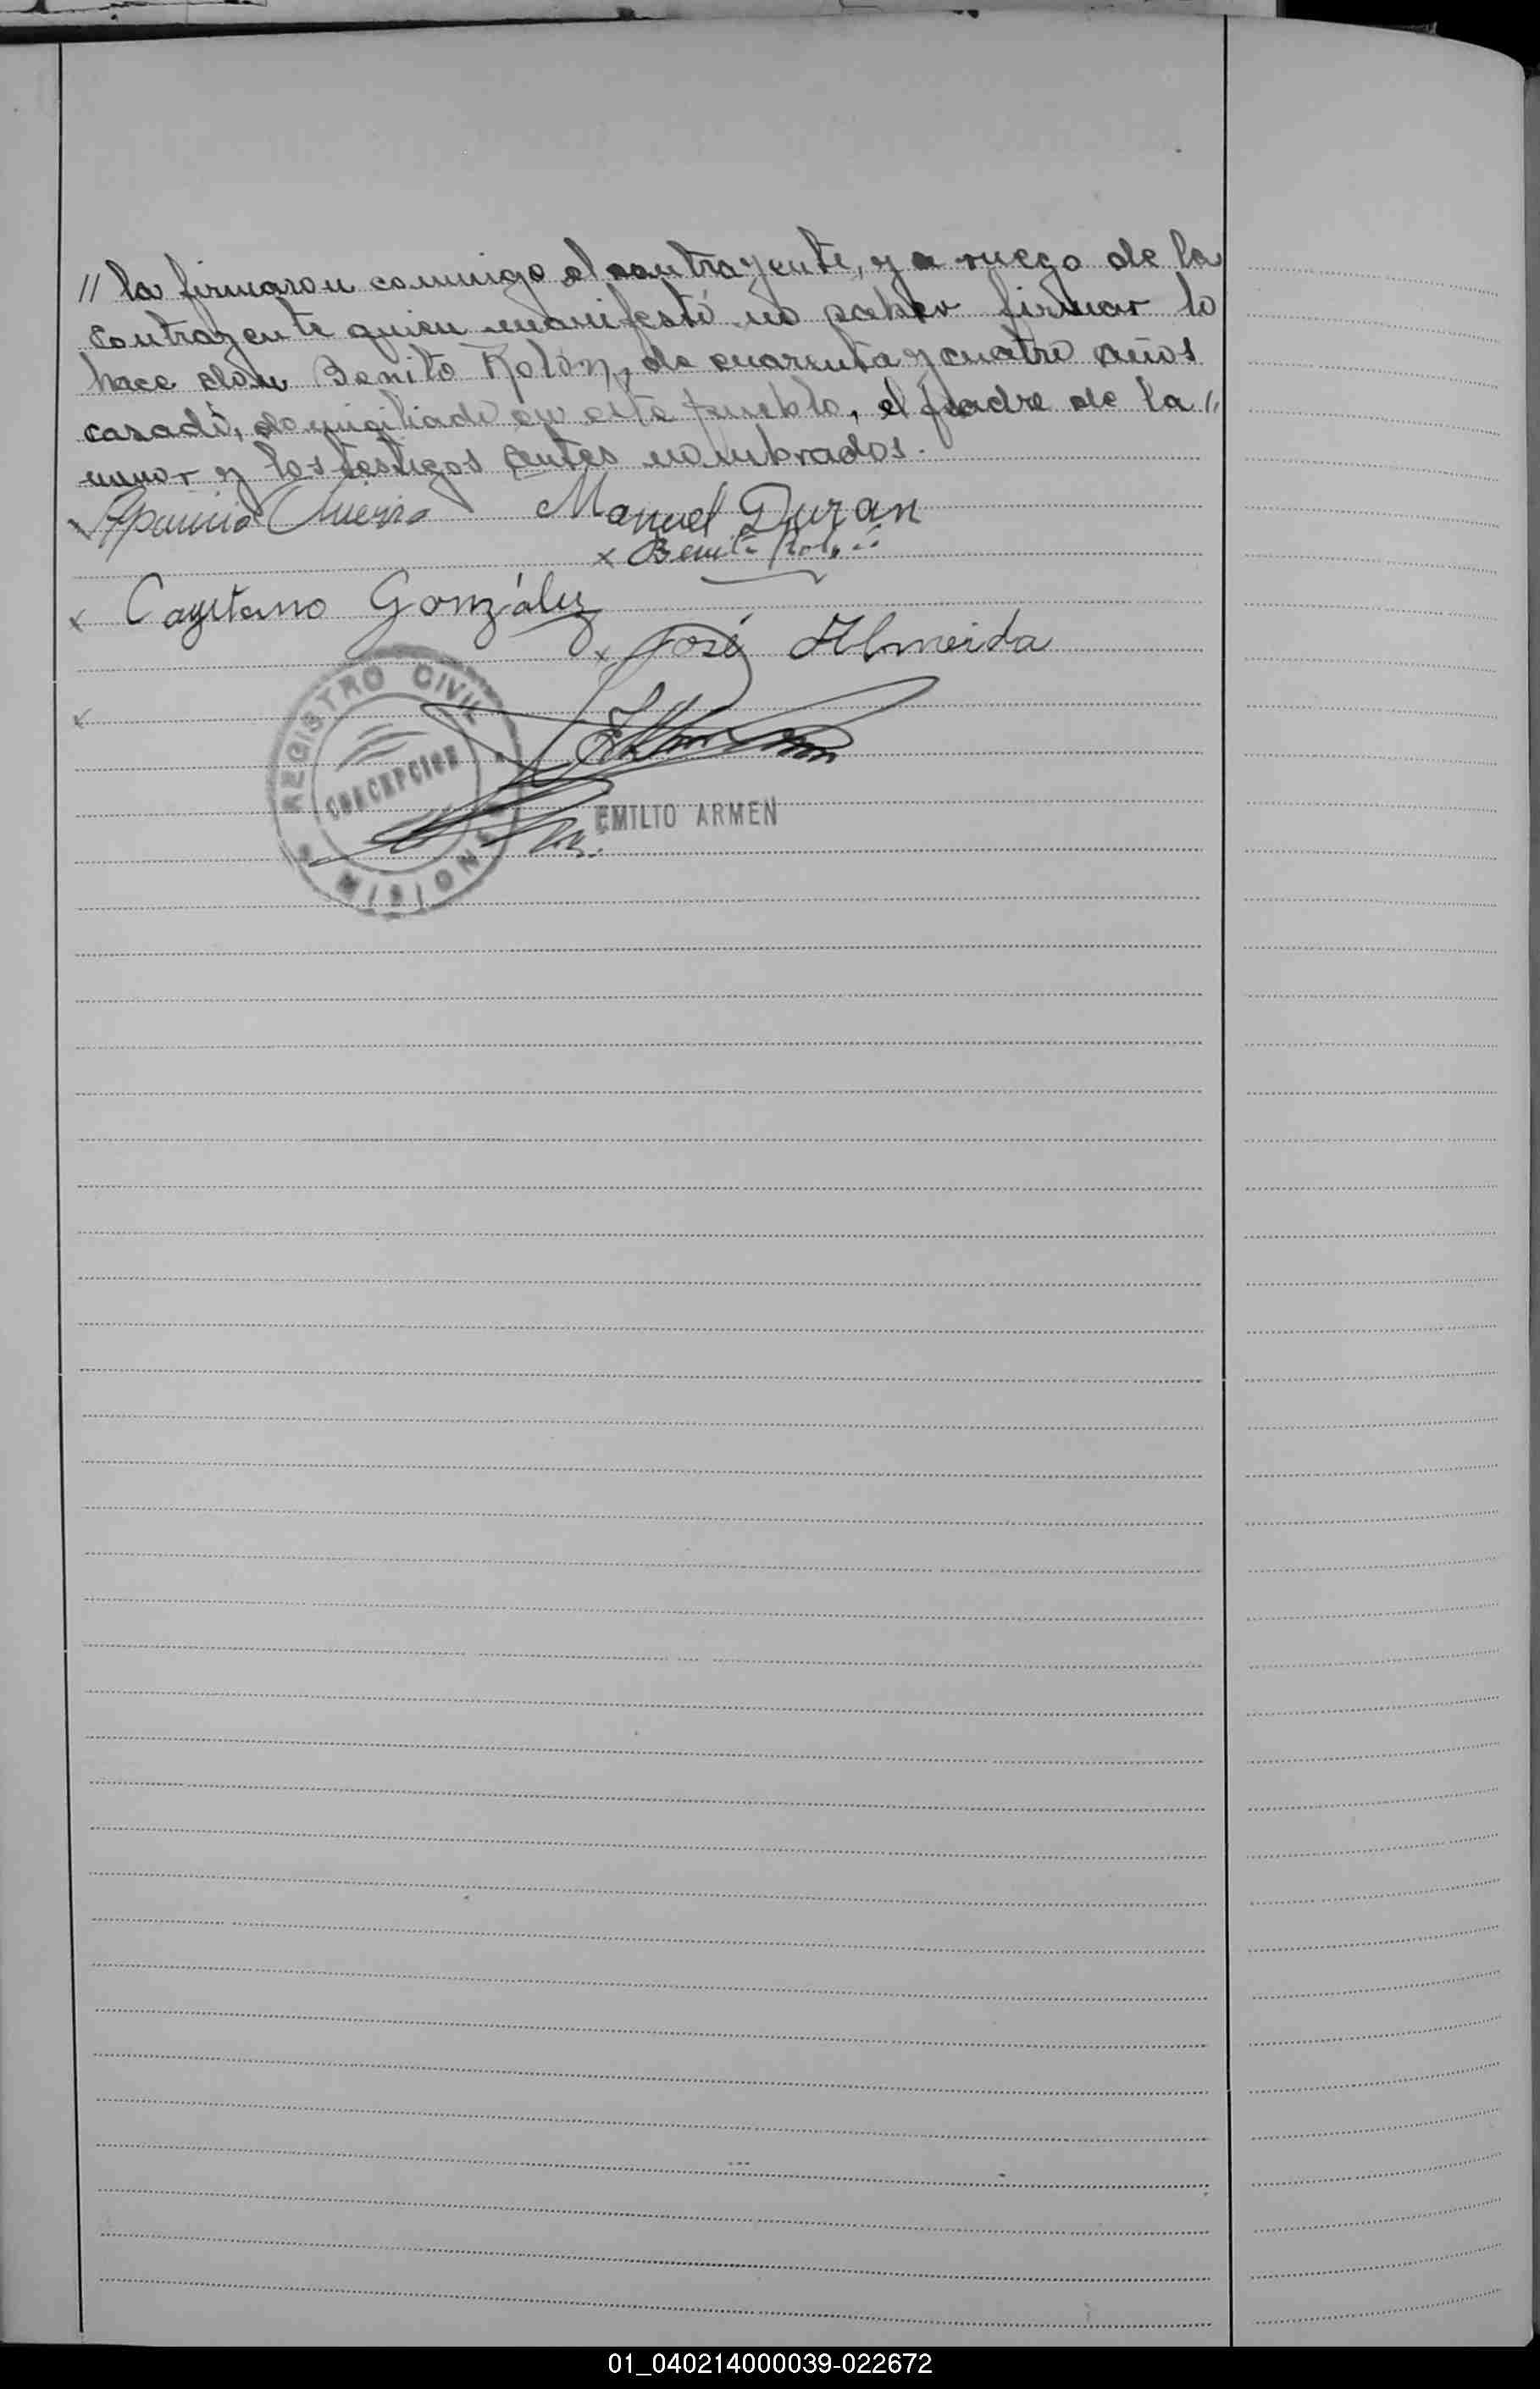 // la firmaron conmigo el contrayente, y a ruego de la
contrayente quien manifestó no saber firmar lo
hace don Benito Rolón, de cuarenta y cuatro años
casado, domiciliado en este pueblo, el padre de la //
menor y los testigos antes nombrados.
Manuel Duran
x Benito
x Cayetano González
x José Almeida
REGISTRO CIVIL
CONCEPCION
MISIONES
EMILIO ARMEN
01_040214000039-022672